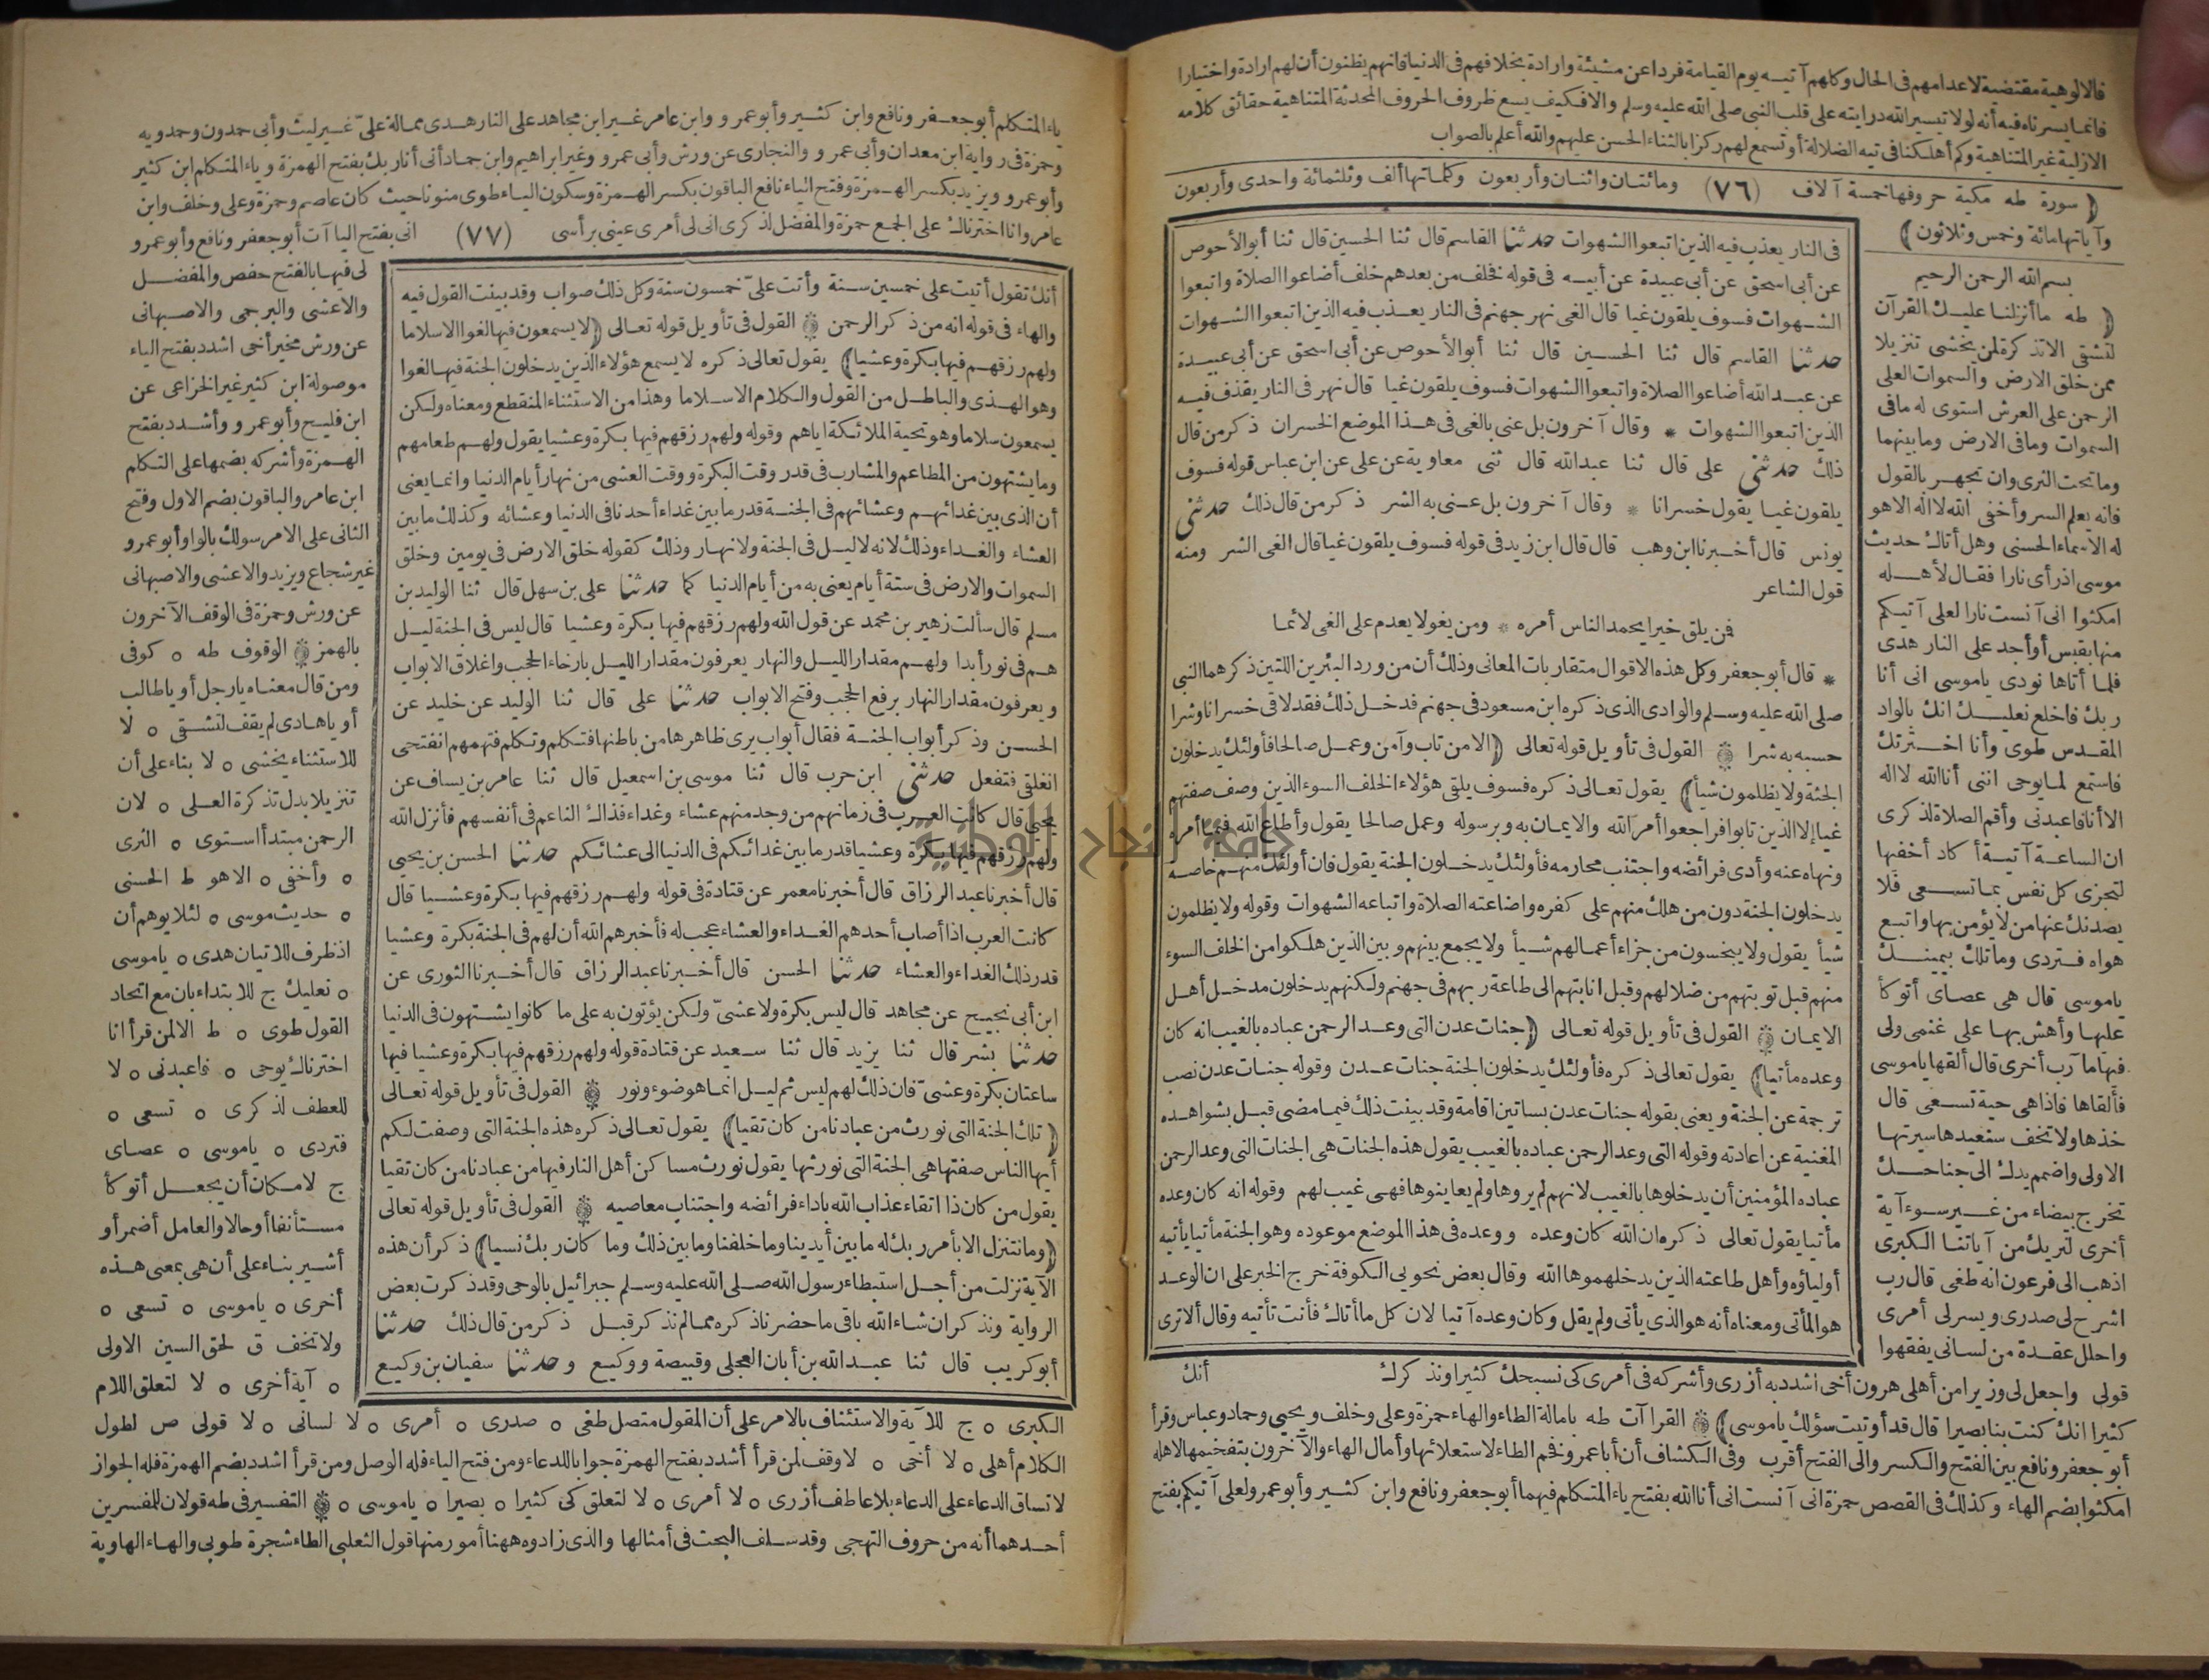 فالالوهية مقتضية لاعدامهم فى الحال وكلهم آتيه يوم القيامة فردا عن مشيئة وارادة بخلافهم فى الدنيا فانهم يظنون أن لهم ارادة واختيارا
فانما يسرناه فيه أنه لولا تيسير الله درايته على قلب النبى صلى الله عليه وسلم والا فكيف يسع ظروف الحروف المحدثة المتناهية حقائق كلامه
الازلية غير المتناهية وكم أهلكنا فى تيه الضلالة أو تسمع لهم ركزا بالثناء الحسن عليهم والله أعلم بالصواب
(سورة طه مكية حروفها خمسة آلاف (٧٦) ومائتان واثنان وأربعون وكلماتها ألف وثلثمائة واحدى وأربعون
وآياتها مائة وخمس وثلاثون)
بسم الله الرحمن الرحيم
(طه ما أنزلنا عليك القرآن
لتشقى الا تذكرة لمن يخشى تنزيلا
ممن خلق الارض والسموات العلى
الرحمن على العرش استوى له ما فى
السموات وما فى الارض وما بينهما
وما تحت الثرى وان تجهر بالقول
فانه يعلم السر وأخفى الله لا اله الا هو
له الاسماء الحسنى وهل أتاك حديث
موسى اذ رأى نارا فقال لأهله
امكثوا انى آنست نارا لعلى آتيكم
منها بقبس أو أجد على النار هدى
فلما أتاها نودى ياموسى انى أنا
ربك فاخلع نعليك انك بالواد
المقدس طوى وأنا اخترتك
فاستمع لما يوحى اننى أنا الله لا اله
الا أنا فاعبدنى وأقم الصلاة لذكرى
ان الساعة آتية أكاد أخفيها
لتجزى كل نفس بما تسعى فلا
يصدنك عنها من لا يؤمن بها واتبع
هواه فتردى وما تلك بيمينك
ياموسى قال هى عصاى أتوكأ
عليها وأهش بها على غنمى ولى
فيها مآرب أخرى قال ألقها ياموسى
فألقاها فاذا هى حية تسعى قال
خذها ولا تخف ستعيدها سيرتها
الاولى واضمم يدك الى جناحك
تخرج بيضاء من غير سوء آية
أخرى لنريك من آياتنا الكبرى
اذهب الى فرعون انه طغى قال رب
اشرح لى صدرى ويسر لى أمرى
واحلل عقدة من لسانى يفقهوا
فى النار يعذب فيه الذين اتبعوا الشهوات حدثنا القاسم قال ثنا الحسين قال ثنا أبو الأحوص
عن أبى اسحق عن أبى عبيدة عن أبيه فى قوله فخلف من بعدهم خلف أضاعوا الصلاة واتبعوا
الشهوات فسوف يلقون غيا قال الغى نهر جهنم فى النار يعذب فيه الذين اتبعوا الشهوات
حدثنا القاسم قال ثنا الحسين قال ثنا أبو الأحوص عن أبى اسحق عن أبى عبيدة
عن عبد الله أضاعوا الصلاة واتبعوا الشهوات فسوف يلقون غيا قال نهر فى النار يقذف فيه
الذين اتبعوا الشهوات * وقال آخرون بل عنى بالغى فى هذا الموضع الخسران ذكر من قال
ذلك حدثنى على قال ثنا عبد الله قال ثنى معاوية عن على عن ابن عباس قوله فسوف
يلقون غيا يقول خسرانا * وقال آخرون بل عنى به الشر ذكر من قال ذلك حدثنى
يونس قال أخبرنا ابن وهب قال قال ابن زيد فى قوله فسوف يلقون غيا قال الغى الشر ومنه
قول الشاعر
فمن يلق خيرا يحمد الناس أمره * ومن يغو لا يعدم على الغى لائما
* قال أبو جعفر وكل هذه الاقوال متقاربات المعانى وذلك أن من ورد البئرين اللتين ذكرهما النبى
صلى الله عليه وسلم والوادى الذى ذكره ابن مسعود فى جهنم فدخل ذلك فقد لاقى خسرانا وشرا
حسبه به شرا ۞ القول فى تأويل قوله تعالى (الا من تاب وآمن وعمل صالحا فأولئك يدخلون
الجنة ولا يظلمون شيأ) يقول تعالى ذكره فسوف يلقى هؤلاء الخلف السوء الذين وصف صفتهم
غيا إلا الذين تابوا فراجعوا أمر الله والايمان به وبرسوله وعمل صالحا يقول وأطاع الله فيما أمره
ونهاه عنه وأدى فرائضه واجتنب محارمه فأولئك يدخلون الجنة يقول فان أولئك منهم خاصة
يدخلون الجنة دون من هلك منهم على كفره واضاعته الصلاة واتباعه الشهوات وقوله ولا يظلمون
شيأ يقول ولا يبخسون من جزاء أعمالهم شيأ ولا يجمع بينهم وبين الذين هلكوا من الخلف السوء
منهم قبل توبتهم من ضلالهم وقبل انابتهم الى طاعة ربهم فى جهنم ولكنهم يدخلون مدخل أهل
الايمان ۞ القول فى تأويل قوله تعالى (جنات عدن التى وعد الرحمن عباده بالغيب انه كان
وعده مأتيا) يقول تعالى ذكره فأولئك يدخلون الجنة جنات عدن وقوله جنات عدن نصب
ترجمة عن الجنة ويعنى بقوله جنات عدن بساتين اقامة وقد بينت ذلك فيما مضى قبل بشواهده
المغنية عن اعادته وقوله التى وعد الرحمن عباده بالغيب يقول هذه الجنات هى الجنات التى وعد الرحمن
عباده المؤمنين أن يدخلوها بالغيب لانهم لم يروها ولم يعاينوها فهى غيب لهم وقوله انه كان وعده
مأتيا يقول تعالى ذكره ان الله كان وعده ووعده فى هذا الموضع موعوده وهو الجنة مأتيا يأتيه
أولياؤه وأهل طاعته الذين يدخلهموها الله وقال بعض نحويى الكوفة خرج الخبر على ان الوعد
هو المأتى ومعناه أنه هو الذى يأتى ولم يقل وكان وعده آتيا لان كل ما أتاك فأنت تأتيه وقال ألا ترى
أنك
قولى واجعل لى وزيرا من أهلى هرون أخى اشدد به أزرى وأشركه فى أمرى كى نسبحك كثيرا ونذكرك
كثيرا انك كنت بنا بصيرا قال قد أوتيت سؤلك ياموسى) ۞ القراآت طه بامالة الطاء والهاء حمزة وعلى وخلف ويحيى وحماد وعباس وقرأ
أبو جعفر ونافع بين الفتح والكسر والى الفتح أقرب وفى الكشاف أن أبا عمرو فخم الطاء لاستعلائها وأمال الهاء والآخرون بتفخيمها لاهله
امكثوا بضم الهاء وكذلك فى القصص حمزة انى آنست انى أنا الله بفتح ياء المتكلم فيهما أبو جعفر ونافع وابن كثير وأبو عمرو لعلى آتيكم بفتح
ياء المتكلم أبو جعفر ونافع وابن كثير وأبو عمرو وابن عامر غير ابن مجاهد على النار هدى ممالة علىّ غير ليث وأبى حمدون وحمدويه
وحمزة فى رواية ابن معدان وأبى عمرو والنجارى عن ورش وأبى عمرو وغير ابراهيم وابن حماد أنى أنا ربك بفتح الهمزة وياء المتكلم ابن كثير
وأبو عمرو ويزيد بكسر الهمزة وفتح الياء نافع الباقون بكسر الهمزة وسكون الياء طوى منونا حيث كان عاصم وحمزة وعلى وخلف وابن
عامر وانا اخترناك على الجمع حمزة والمفضل لذكرى انى لى أمرى عينى برأسى (٧٧) انى بفتح الياآت أبو جعفر ونافع وأبو عمرو
لى فيها بالفتح حفص والمفضل
والاعشى والبرجمى والاصبهانى
عن ورش مخير أخى اشدد بفتح الياء
موصولة ابن كثير غير الخزاعى عن
ابن فليح وأبو عمرو وأشدد بفتح
الهمزة وأشركه بضمها على التكلم
ابن عامر والباقون بضم الاول وفتح
الثانى على الامر سولك بالواو أبو عمرو
غير شجاع ويزيد والاعشى والاصبهانى
عن ورش وحمزة فى الوقف الآخرون
بالهمز ۞ الوقوف طه ه كوفى
ومن قال معناه يا رجل أو يا طالب
أو يا هادى لم يقف لتشقى ه لا
للاستثناء يخشى ه لا بناء على أن
تنزيلا بدل تذكرة العلى ه لان
الرحمن مبتدأ استوى ه الثرى
ه وأخفى ه الا هو ط الحسنى
ه حديث موسى ه لئلا يوهم أن
اذ ظرف للاتيان هدى ه ياموسى
ه نعليك ج للابتداء بان مع اتحاد
القول طوى ه ط الا لمن قرأ انا
اخترناك يوحى ه فاعبدنى ه لا
للعطف لذكرى ه تسعى ه
فتردى ه ياموسى ه عصاى
ج لامكان أن يجعل أتوكأ
مستأنفا أو حالا والعامل أضمر أو
أشير بناء على أن هى بمعنى هذه
أخرى ه ياموسى ه تسعى ه
ولا تخف ق لحق السين الاولى
ه آية أخرى ه لا لتعلق اللام
أنك تقول أتيت على خمسين سنة وأتت علىّ خمسون سنة وكل ذلك صواب وقد بينت القول فيه
والهاء فى قوله انه من ذكر الرحمن ۞ القول فى تأويل قوله تعالى (لا يسمعون فيها لغوا الا سلاما
ولهم رزقهم فيها بكرة وعشيا) يقول تعالى ذكره لا يسمع هؤلاء الذين يدخلون الجنة فيها لغوا
وهو الهذى والباطل من القول والكلام الا سلاما وهذا من الاستثناء المنقطع ومعناه ولكن
يسمعون سلاما وهو تحية الملائكة اياهم وقوله ولهم رزقهم فيها بكرة وعشيا يقول ولهم طعامهم
وما يشتهون من المطاعم والمشارب فى قدر وقت البكرة ووقت العشى من نهار أيام الدنيا وانما يعنى
أن الذى بين غدائهم وعشائهم فى الجنة قدر ما بين غداء أحدنا فى الدنيا وعشائه وكذلك ما بين
العشاء والغداء وذلك لانه لا ليل فى الجنة ولا نهار وذلك كقوله خلق الارض فى يومين وخلق
السموات والارض فى ستة أيام يعنى به من أيام الدنيا كما حدثنا على بن سهل قال ثنا الوليد بن
مسلم قال سألت زهير بن محمد عن قول الله ولهم رزقهم فيها بكرة وعشيا قال ليس فى الجنة ليل
هم فى نور أبدا ولهم مقدار الليل والنهار يعرفون مقدار الليل بارخاء الحجب واغلاق الابواب
ويعرفون مقدار النهار برفع الحجب وفتح الابواب حدثنا على قال ثنا الوليد عن خليد عن
الحسن وذكر أبواب الجنة فقال أبواب يرى ظاهرها من باطنها فتكلم وتكلم فتهمهم انفتحى
انغلقى فتفعل حدثنى ابن حرب قال ثنا موسى بن اسمعيل قال ثنا عامر بن يساف عن
يحيى قال كانت العرب فى زمانهم من وجد منهم عشاء وغداء فذاك الناعم فى أنفسهم فأنزل الله
ولهم رزقهم فيها بكرة وعشيا قدر ما بين غدائكم فى الدنيا الى عشائكم حدثنا الحسن بن يحيى
قال أخبرنا عبد الرزاق قال أخبرنا معمر عن قتادة فى قوله ولهم رزقهم فيها بكرة وعشيا قال
كانت العرب اذا أصاب أحدهم الغداء والعشاء عجب له فأخبرهم الله أن لهم فى الجنة بكرة وعشيا
قدر ذلك الغداء والعشاء حدثنا الحسن قال أخبرنا عبد الرزاق قال أخبرنا الثورى عن
ابن أبى نجيح عن مجاهد قال ليس بكرة ولا عشىّ ولكن يؤتون به على ما كانوا يشتهون فى الدنيا
حدثنا بشر قال ثنا يزيد قال ثنا سعيد عن قتادة قوله ولهم رزقهم فيها بكرة وعشيا فيها
ساعتان بكرة وعشىّ فان ذلك لهم ليس ثم ليل انما هو ضوء ونور ۞ القول فى تأويل قوله تعالى
(تلك الجنة التى نورث من عبادنا من كان تقيا) يقول تعالى ذكره هذه الجنة التى وصفت لكم
أيها الناس صفتها هى الجنة التى نورثها يقول نورث مساكن أهل النار فيها من عبادنا من كان تقيا
يقول من كان ذا اتقاء عذاب الله باداء فرائضه واجتناب معاصيه ۞ القول فى تأويل قوله تعالى
(وما نتنزل الا بأمر ربك له ما بين أيدينا وما خلفنا وما بين ذلك وما كان ربك نسيا) ذكر أن هذه
الآية نزلت من أجل استبطاء رسول الله صلى الله عليه وسلم جبرائيل بالوحى وقد ذكرت بعض
الرواية ونذكر ان شاء الله باقى ما حضرنا ذكره مما لم نذكر قبل ذكر من قال ذلك حدثنا
أبو كريب قال ثنا عبد الله بن أبان العجلى وقبيصة ووكيع وحدثنا سفيان بن وكيع
الكبرى ه ج للآية والاستئناف بالامر على أن المقول متصل طغى ه صدرى ه أمرى ه لا لسانى ه لا قولى ص لطول
الكلام أهلى ه لا أخى ه لا وقف لمن قرأ أشدد بفتح الهمزة جوابا للدعاء ومن فتح الياء فله الوصل ومن قرأ اشدد بضم الهمزة فله الجواز
لاتساق الدعاء على الدعاء بلا عاطف أزرى ه لا أمرى ه لا لتعلق كى كثيرا ه بصيرا ه ياموسى ه ۞ التفسير فى طه قولان للمفسرين
أحدهما أنه من حروف التهجى وقد سلف البحث فى أمثالها والذى زادوه ههنا أمور منها قول الثعلبى الطاء شجرة طوبى والهاء الهاوية
جامعة النجاح الوطنية